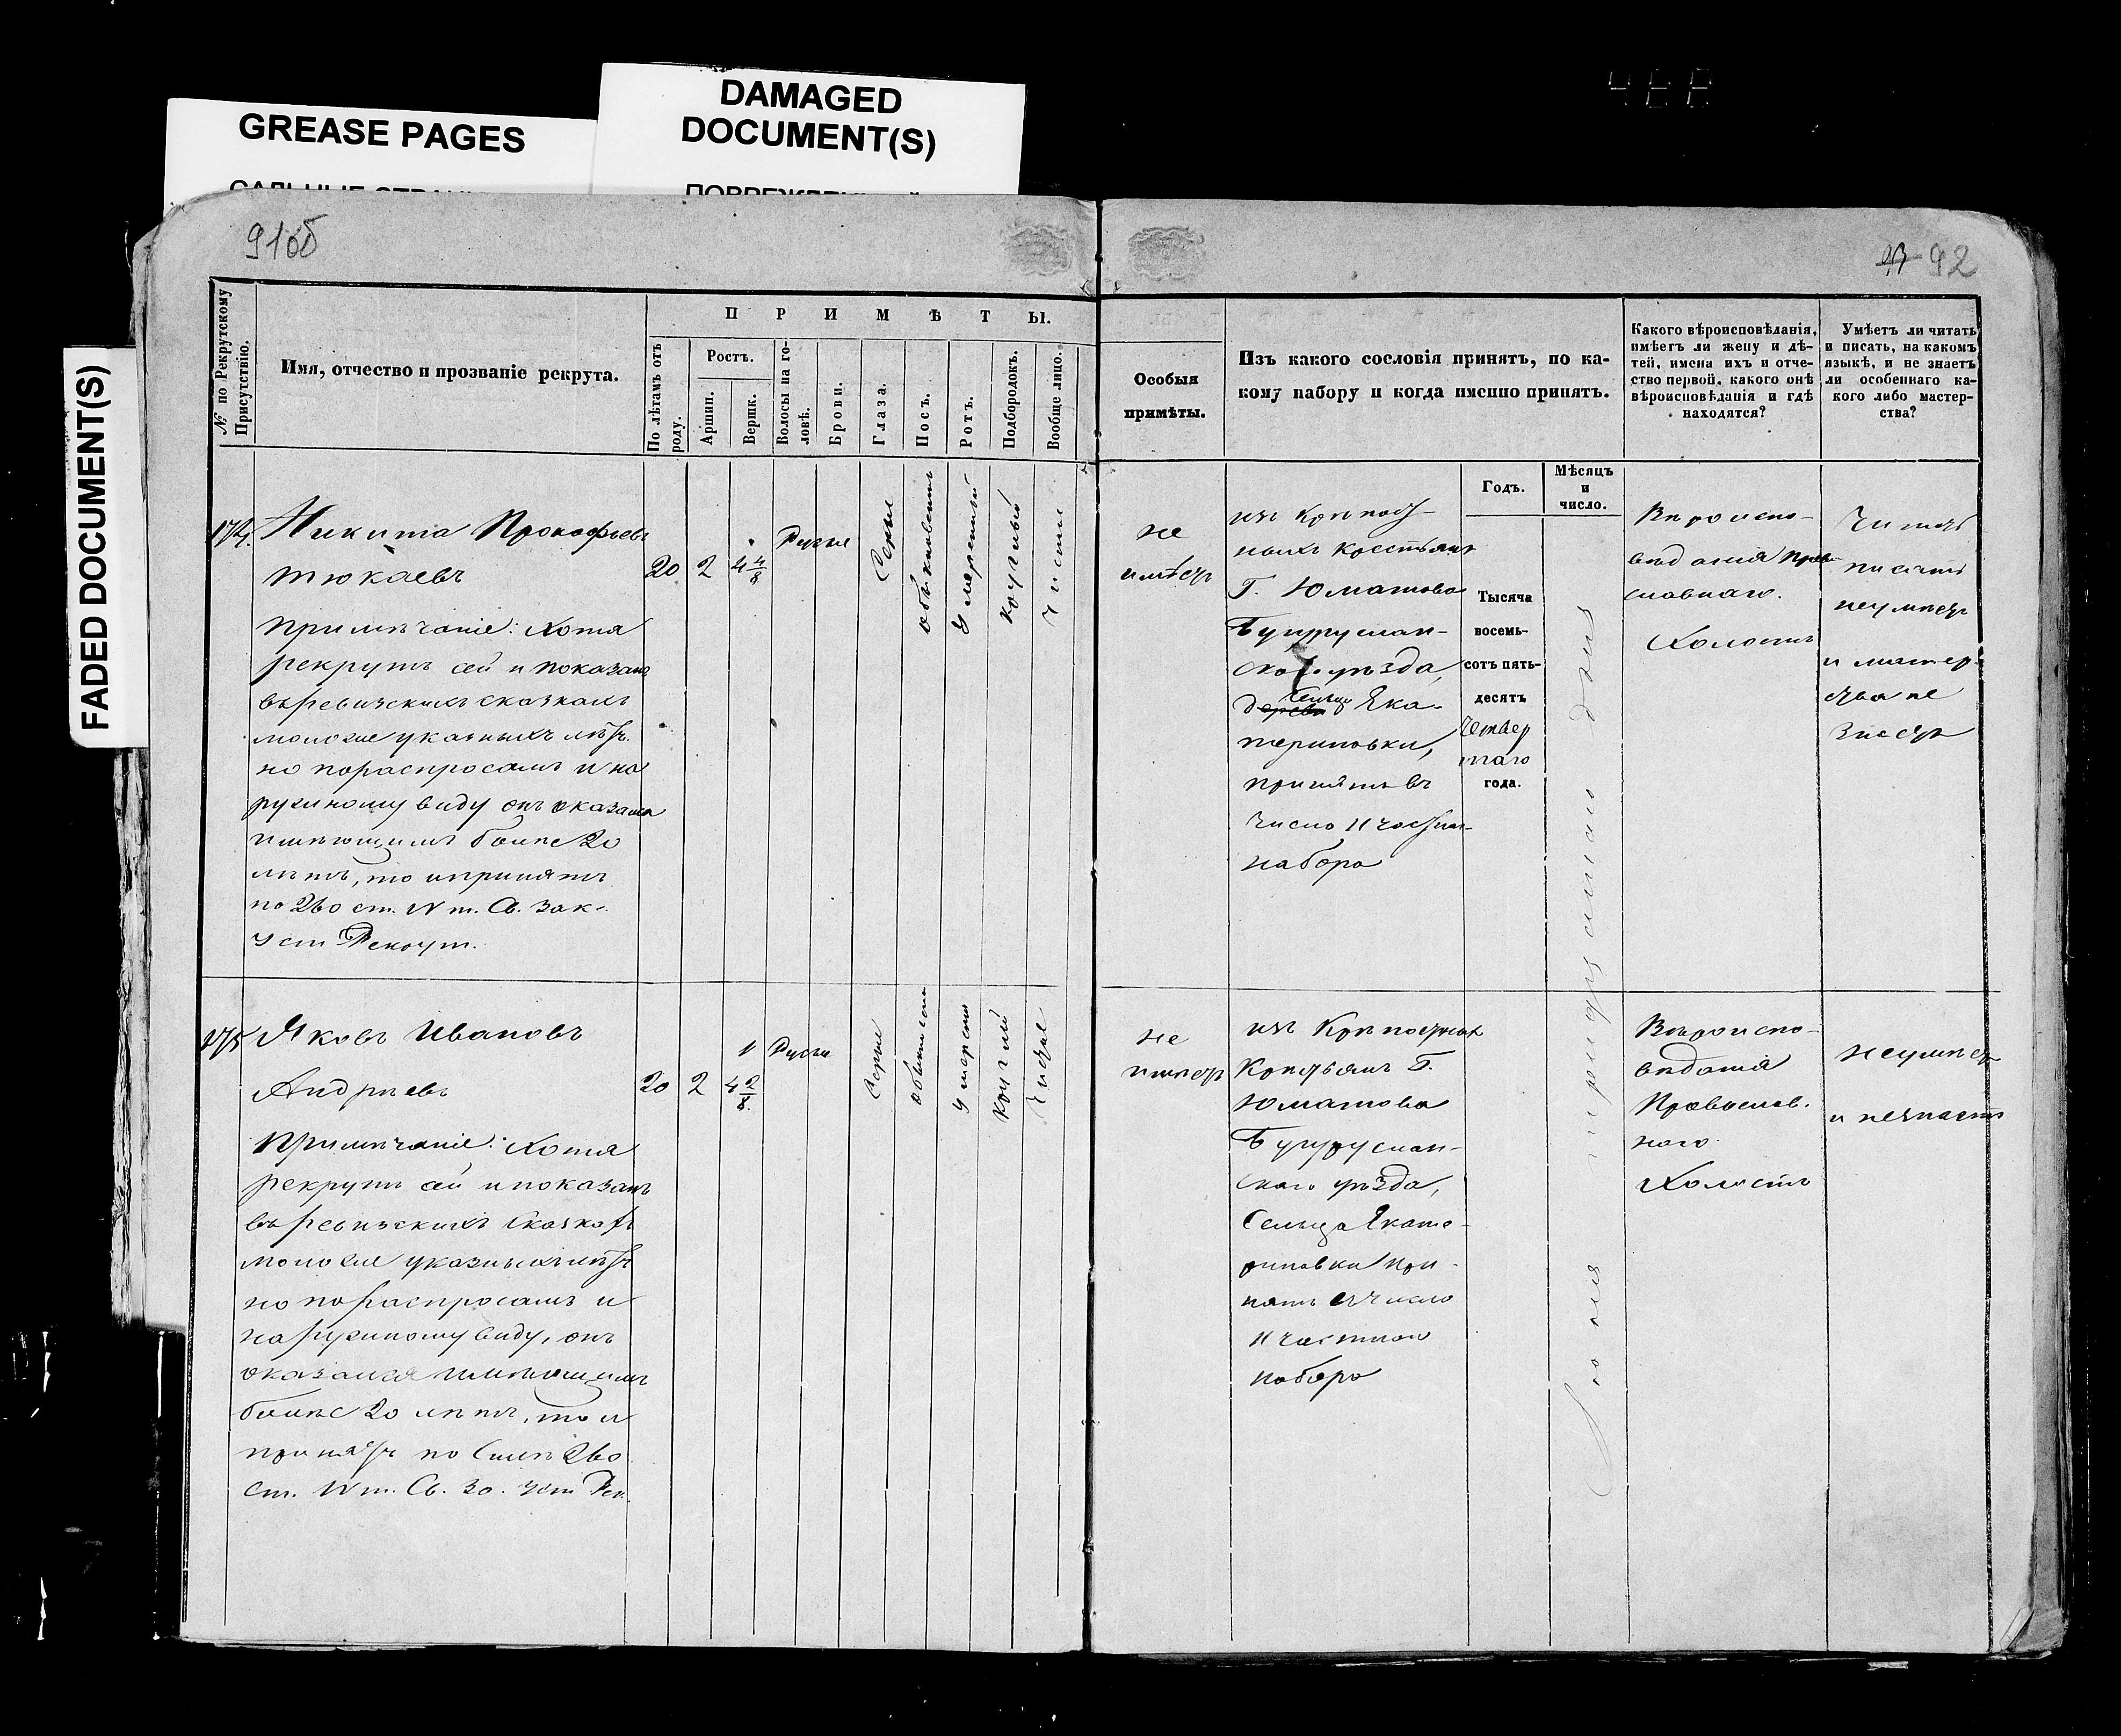 GREASE PAGES
DAMAGED
DOCUMENT(S)
FADED DOCUMENT(S)
91об
92
№ по Рекрутскому Присутствію.
Имя, отчество и прозваніе рекрута.
ПРИМѢТЫ.
По лѣтамъ отъ роду.
Ростъ.
Аршин.
Вершк.
Волосы на головѣ.
Брови.
Глаза.
Носъ.
Ротъ.
Подбородокъ.
Вообще лицо.
Особыя
примѣты.
Изъ какого сословія принятъ, по ка-
кому набору и когда именно принятъ.
Какого вѣроисповѣданія,
имѣетъ ли жену и дѣ-
тей, имена ихъ и отче-
ство первой, какого онѣ
вѣроисповѣданія и гдѣ
находятся?
Умѣетъ ли читать
и писать, на какомъ
языкѣ, и не знаетъ
ли особеннаго ка-
кого либо мастер-
ства?
Годъ.
Мѣсяцъ
и
число.
174.
Никита Прокофьевъ
Тюкаевъ
Примѣчаніе: Хотя
рекрутъ сей и показанъ
въ ревизскихъ сказкахъ
моложе указныхъ лѣтъ.
но по распросамъ и на
ружному виду онъ оказался
имѣющимъ болѣе 20
лѣтъ, то и принятъ
по 260 ст. IV т. Св. Зак.
Уст Рекрут.
20
2
4 4/8
Русые
Серые
обыкновенный
умеренный
круглый
чистое
не
имѣетъ
изъ крѣпост-
ныхъ крестьянъ
Г. Юматова
Бугуруслан-
скаго уѣзда,
дерев сельцо Ека-
териновки,
принятъ въ
число 11 частнаго
набора
Тысяча
восемь-
сотъ пять-
десятъ
четвер
таго
года.
Іюля тридцатаго дня
Вѣроиспо-
веданія Право
славнаго.
Холостъ
Читать
писать
неумѣетъ
и мастер-
ства не
знаетъ
175
Яковъ Ивановъ
Андреевъ
Примѣчаніе: Хотя
рекрутъ сей и показанъ
въ ревизскихъ сказкахъ
моложе указныхъ лѣтъ
но по распросамъ и
наружному виду, онъ
оказался имѣющимъ
болѣе 20 лѣтъ, то и
принятъ по силѣ 260
ст. IV т. Св. За. Уст Рек.
20
2
4 2/8
Русые
Серые
обыкновен
умеренн
круглый
чистое
не
имѣетъ
изъ Крѣпостныхъ
Крестьянъ Г.
Юматова
Бугуруслан-
скаго уѣзда,
сельца Екате-
риновки при-
нятъ въ число
11 частнаго
набора
Вѣроиспо-
веданія
Православ-
наго.
Холостъ
неумѣетъ
и незнаетъ